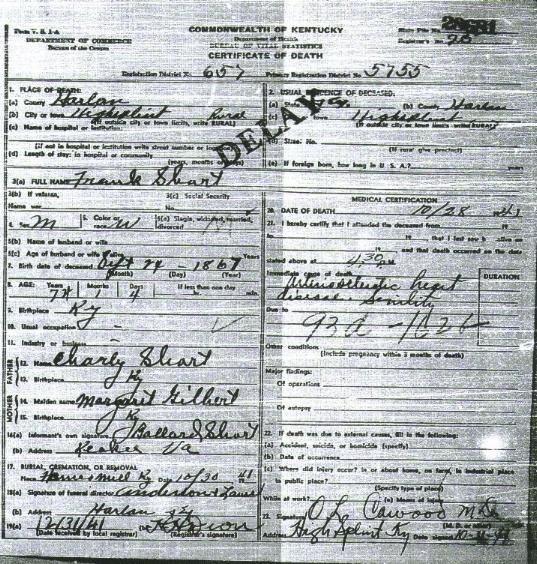 Form V. S. 1-A
DEPARTMENT OF COMMERCE
Bureau of the Census
COMMONWEALTH OF KENTUCKY
Department of Health
BUREAU OF VITAL STATISTICS
CERTIFICATE OF DEATH
State File No.
Registrar's No.
Registration District No. 657 Primary Registration District No. 5755
DELAY
1. PLACE OF DEATH:
(a) County Harlan
(b) City or town Highsplint Rural
(If outside city or town limits, write RURAL)
(c) Name of hospital or institution:
(If not in hospital or institution write street number or
(d) Length of stay: In hospital or community
(years, months
2. USUAL RESIDENCE OF DECEASED:
(a) State Ky. (b) County Harlan
town Highsplint
(If outside city or town limits write RURAL)
(d) Street No.
(If rural give precinct)
(e) If foreign born, how long in U. S. A.? years
3(a) FULL NAME Frank Short
3(b) If veteran,
Name war
3(c) Social Security
No.
4. Sex M
5. Color or race W
6(a) Single, widowed, married, divorced
6(b) Name of husband or wife
6(c) Age of husband or wife if alive Years
7. Birth date of deceased Sept 24 - 1867
(Month) (Day) (Year)
8. AGE: Years Months Days If less than one day
74 1 4 hr. min.
9. Birthplace Ky
10. Usual occupation
11. Industry or business
FATHER
12. Name Charly Short
13. Birthplace Ky
MOTHER
14. Maiden name Margaret Gilbert
15. Birthplace Ky
16(a) Informant's own signature Ballard Short
(b) Address Keokee Va
17. BURIAL, CREMATION, OR REMOVAL
Place Ky Date 10/30 41
18(a) Signature of funeral director
(b) Address Harlan Ky
19(a) 12/31/41 (b)
(Date received by local registrar) (Registrar's signature)
MEDICAL CERTIFICATION
20. DATE OF DEATH 10/28 1941
21. I hereby certify that I attended the deceased from 19
19 that I last saw h alive on
19 and that death occurred on the date
stated above at 4:30
Immediate cause of death DURATION
Arteriosclerotic heart
disease. Senility
Due to
93d - 1626
Other conditions
(Include pregnancy within 3 months of death)
Major findings:
Of operations
Of autopsy
22. If death was due to external causes, fill in the following:
(a) Accident, suicide, or homicide (specify)
(b) Date of occurrence
(c) Where did injury occur? In or about home, on farm, in industrial place
in public place?
(Specify type of place)
While at work? (e) Means of injury
23. Signature Cawood M.D.
(M. D. or other)
Address High Splint Ky Date signed